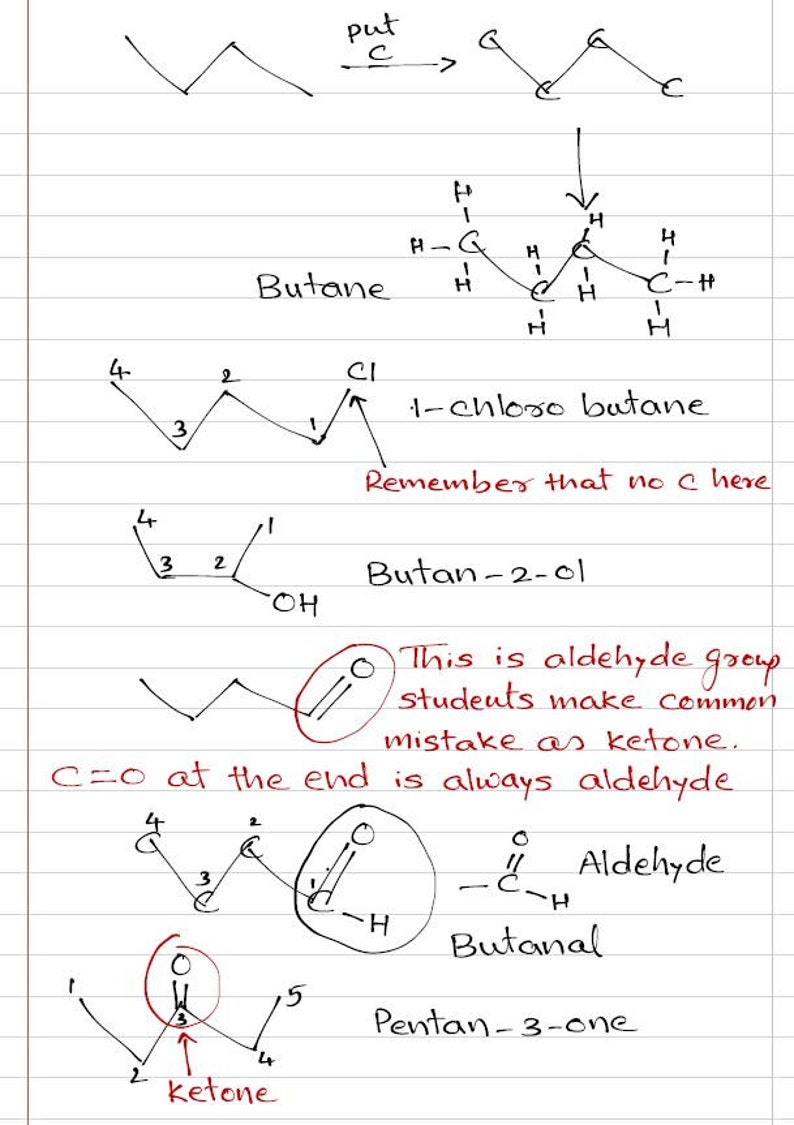 put
C
C C C C
H
H
H - C H C H
H H C - H
C H
H H
Butane
4 2 Cl
3 1
1-chloro butane
Remember that no C here
4 1
3 2
OH
Butan-2-ol
O
This is aldehyde group
students make common
mistake as ketone.
C=O at the end is always aldehyde
4 2 O
C C
3 1
C C - H
O
- C - H
Aldehyde
Butanal
O
1 3 5
2 4
Pentan-3-one
Ketone